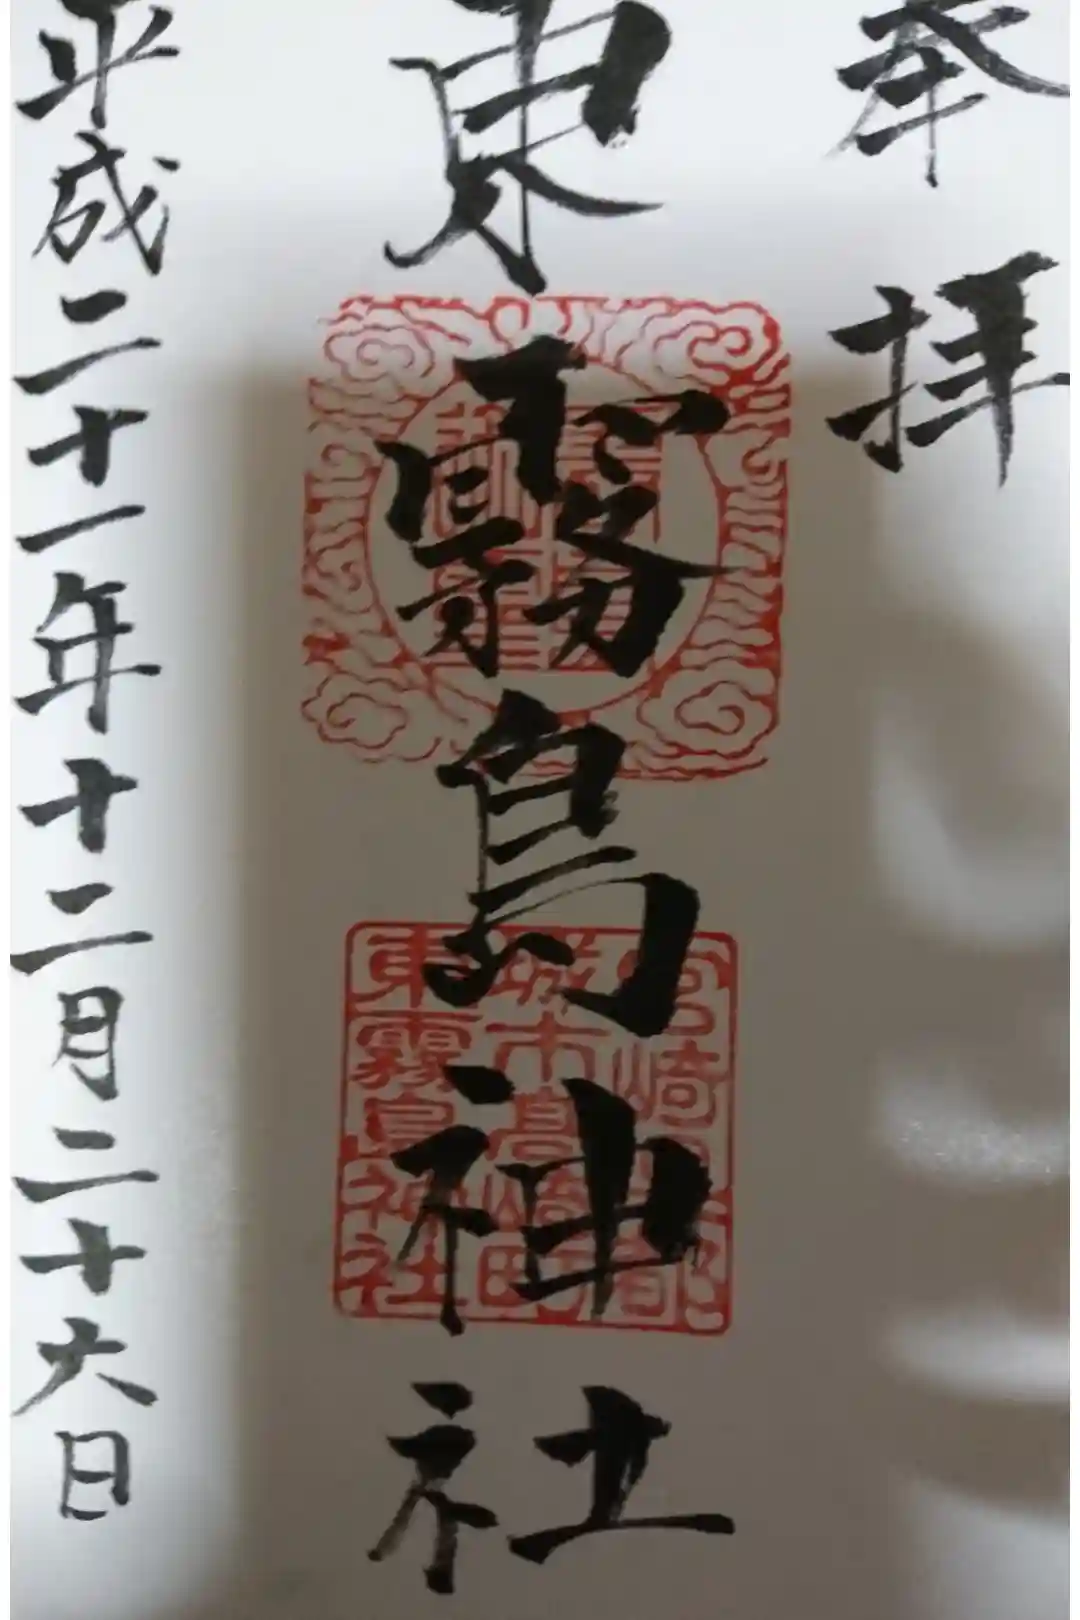 奉拝
東霧島神社
宮崎県都
城市高崎町
東霧島神社
平成二十一年十二月二十六日